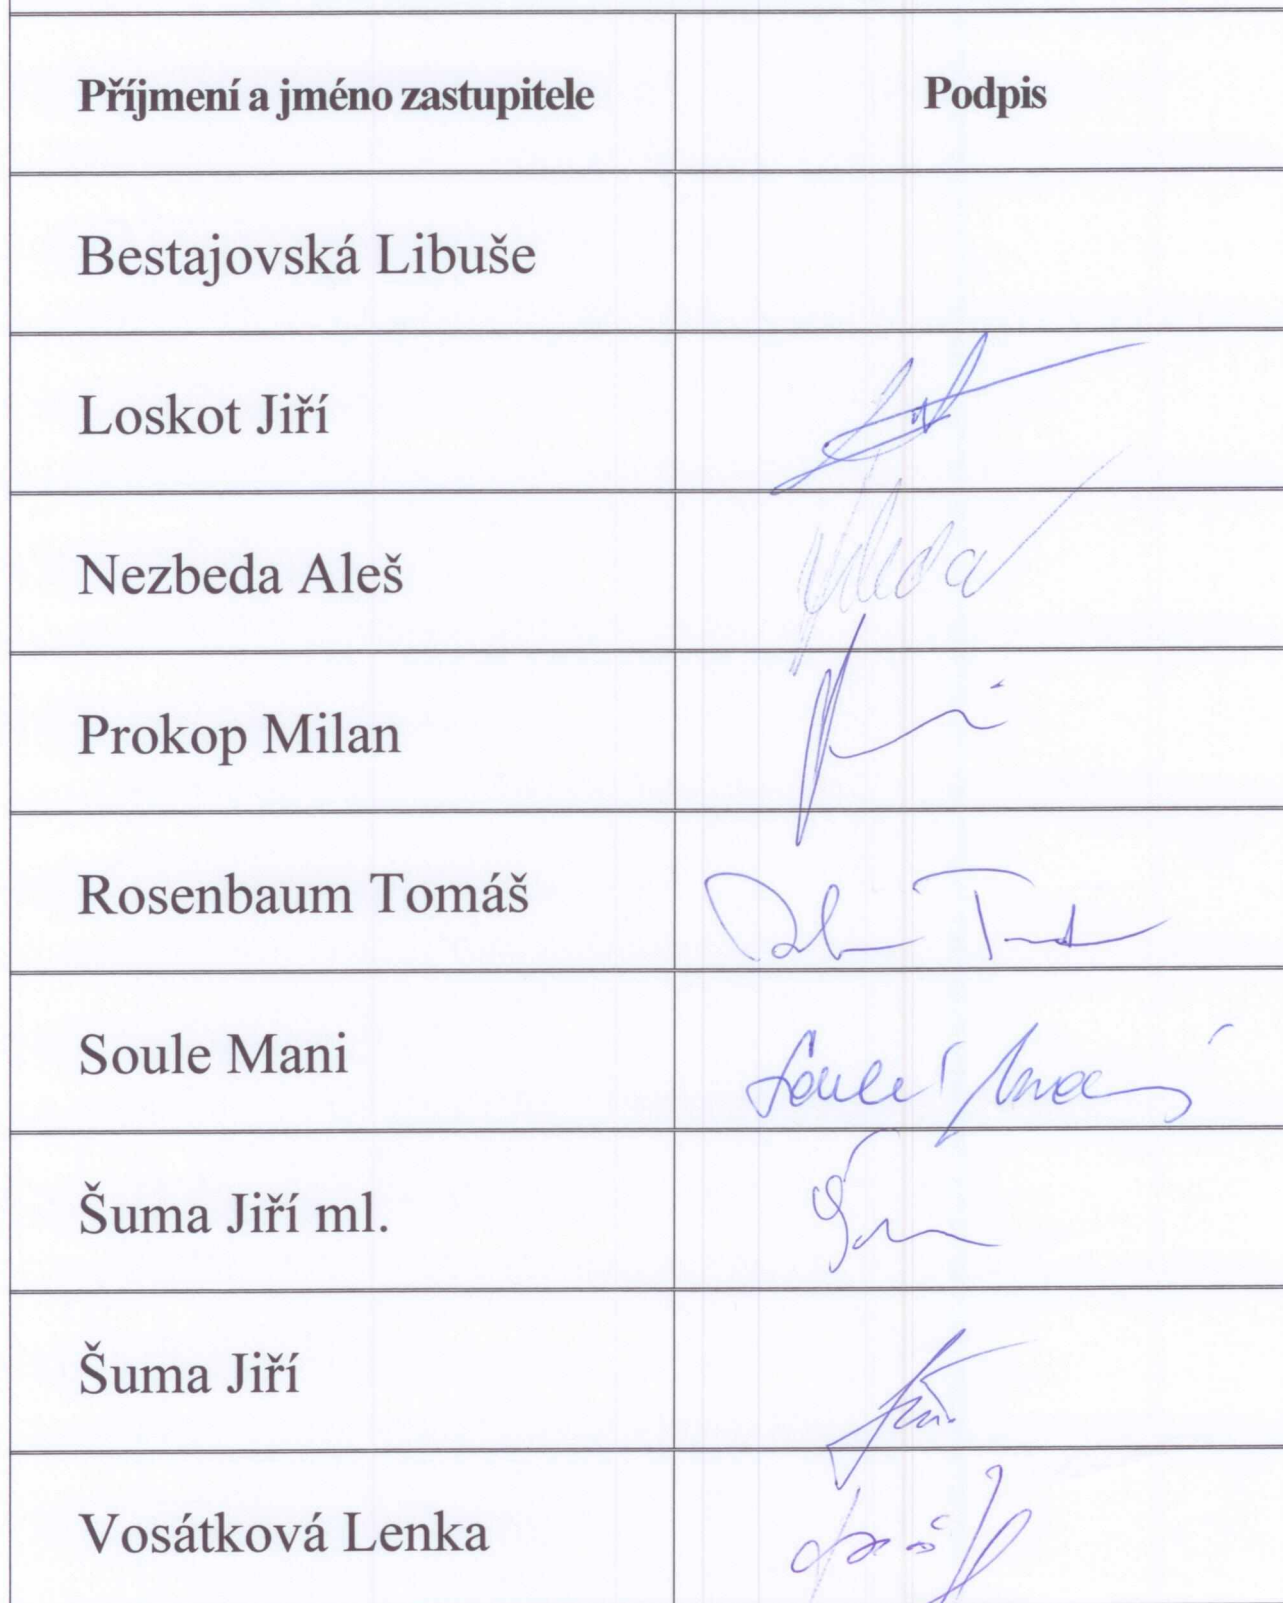 Příjmení a jméno zastupitele Podpis
Bestajovská Libuše
Loskot Jiří
Nezbeda Aleš
Prokop Milan
Rosenbaum Tomáš
Soule Mani
Šuma Jiří ml.
Šuma Jiří
Vosátková Lenka